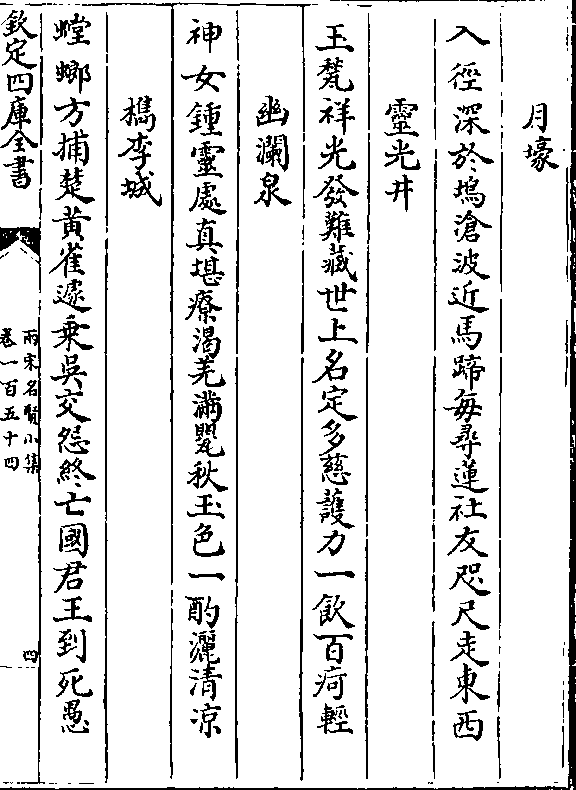 月壕
入徑深於塢滄波近馬蹄每尋蓮社友咫尺走東西
靈光井
玉甃祥光發難藏世上名定多慈護力一飲百疴輕
幽瀾泉
神女鍾靈處真堪療渴羌滿甖秋玉色一酌灑清涼
檇李城
螳螂方捕楚黃雀遽乗吳交怨終亡國君王到死愚
欽定四庫全書
兩宋名賢小集
卷一百五十四
四